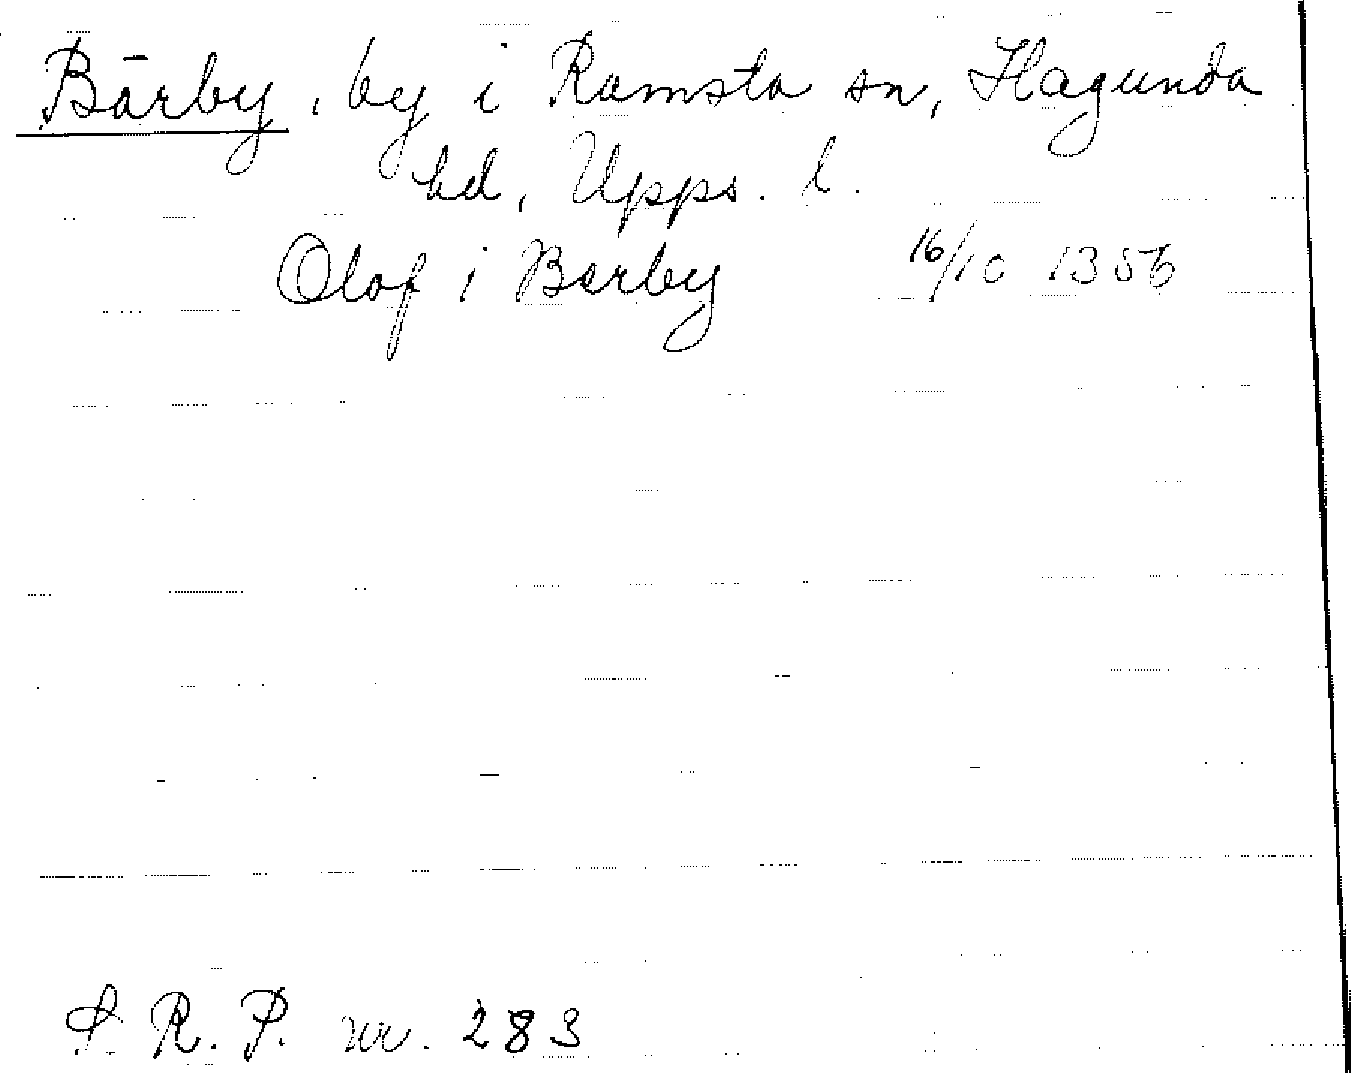 Bärby, by i Ramsta sn, Hagunda
hd, Upps. l.
Olof i Bærby 16/10 1356
S. R. P. nr. 283